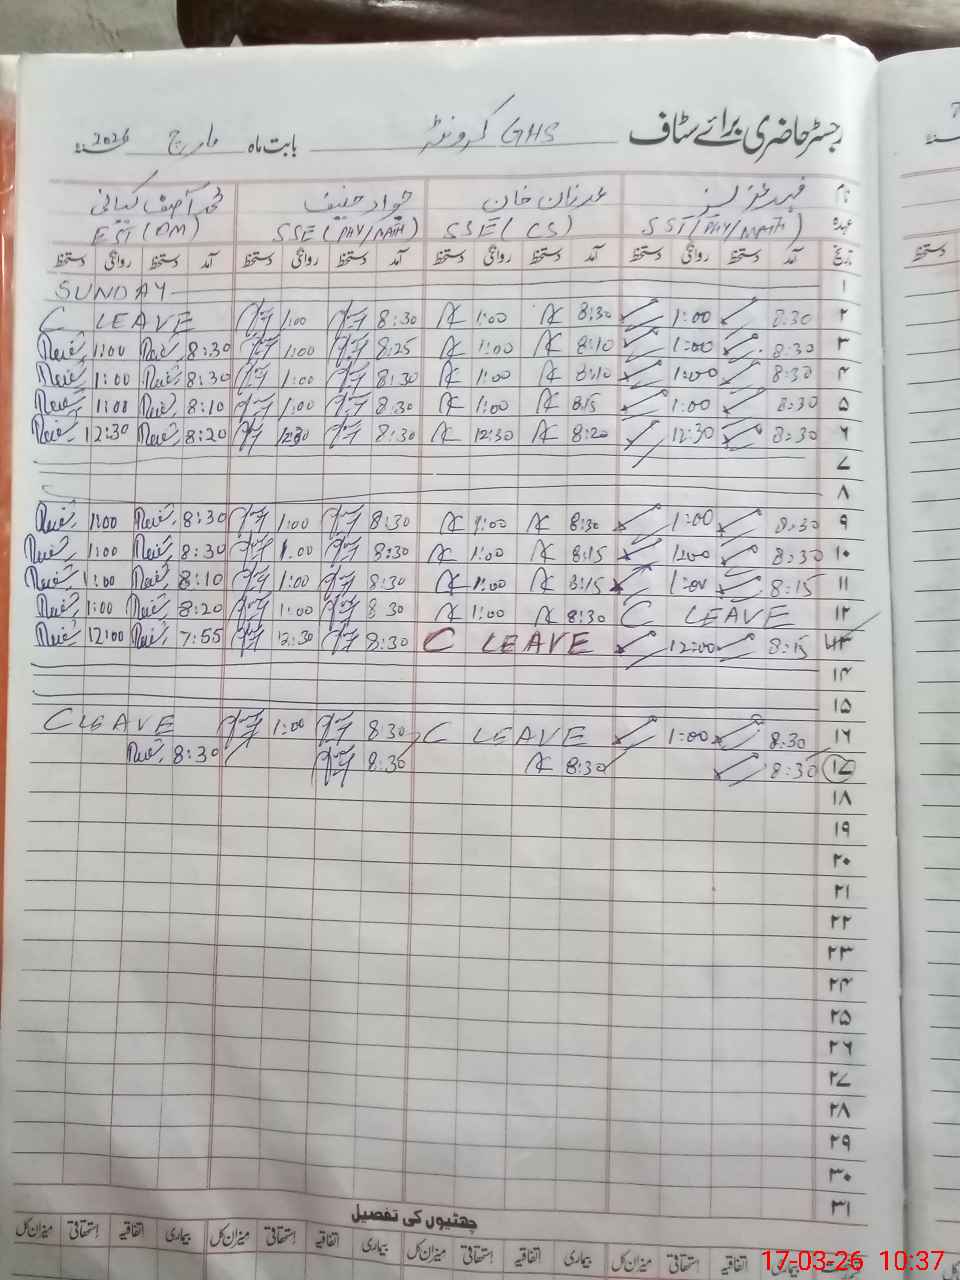 رجسٹر حاضری برائے سٹاف GHS کرونڈہ بابت ماہ مارچ سنہ 2026
نام عدنان خان جواد حنیف محمد آصف کیانی
عہدہ SST (PHY/MATH) SSE (CS) SSE (PHY/MATH) EST (DM)
تاریخ آمد دستخط روانگی دستخط آمد دستخط روانگی دستخط آمد دستخط روانگی دستخط آمد دستخط روانگی دستخط
۱ SUNDAY
۲ 8:30 1:00 8:30 1:00 8:30 1:00 C LEAVE
۳ 8:30 1:00 8:10 1:00 8:25 1:00 8:30 1:00
۴ 8:30 1:00 8:10 1:00 8:30 1:00 8:30 1:00
۵ 8:30 1:00 8:15 1:00 8:30 1:00 8:10 1:00
۶ 8:30 12:30 8:20 12:30 8:30 12:30 8:20 12:30
۷
۸
۹ 8:30 1:00 8:30 1:00 8:30 1:00 8:30 1:00
۱۰ 8:30 1:00 8:15 1:00 8:30 1:00 8:30 1:00
۱۱ 8:15 1:00 8:15 1:00 8:30 1:00 8:10 1:00
۱۲ C LEAVE 8:30 1:00 8:30 1:00 8:20 1:00
۱۳ 8:15 12:00 C LEAVE 8:30 12:30 7:55 12:00
۱۴
۱۵
۱۶ 8:30 1:00 C LEAVE 8:30 1:00 C LEAVE
۱۷ 8:30 8:30 8:30 8:30
۱۸
۱۹
۲۰
۲۱
۲۲
۲۳
۲۴
۲۵
۲۶
۲۷
۲۸
۲۹
۳۰
۳۱
چھٹیوں کی تفصیل
اتفاقیہ استحقاقی میزان کل بیماری اتفاقیہ استحقاقی میزان کل بیماری اتفاقیہ استحقاقی میزان کل بیماری اتفاقیہ استحقاقی میزان کل
17-03-26 10:37